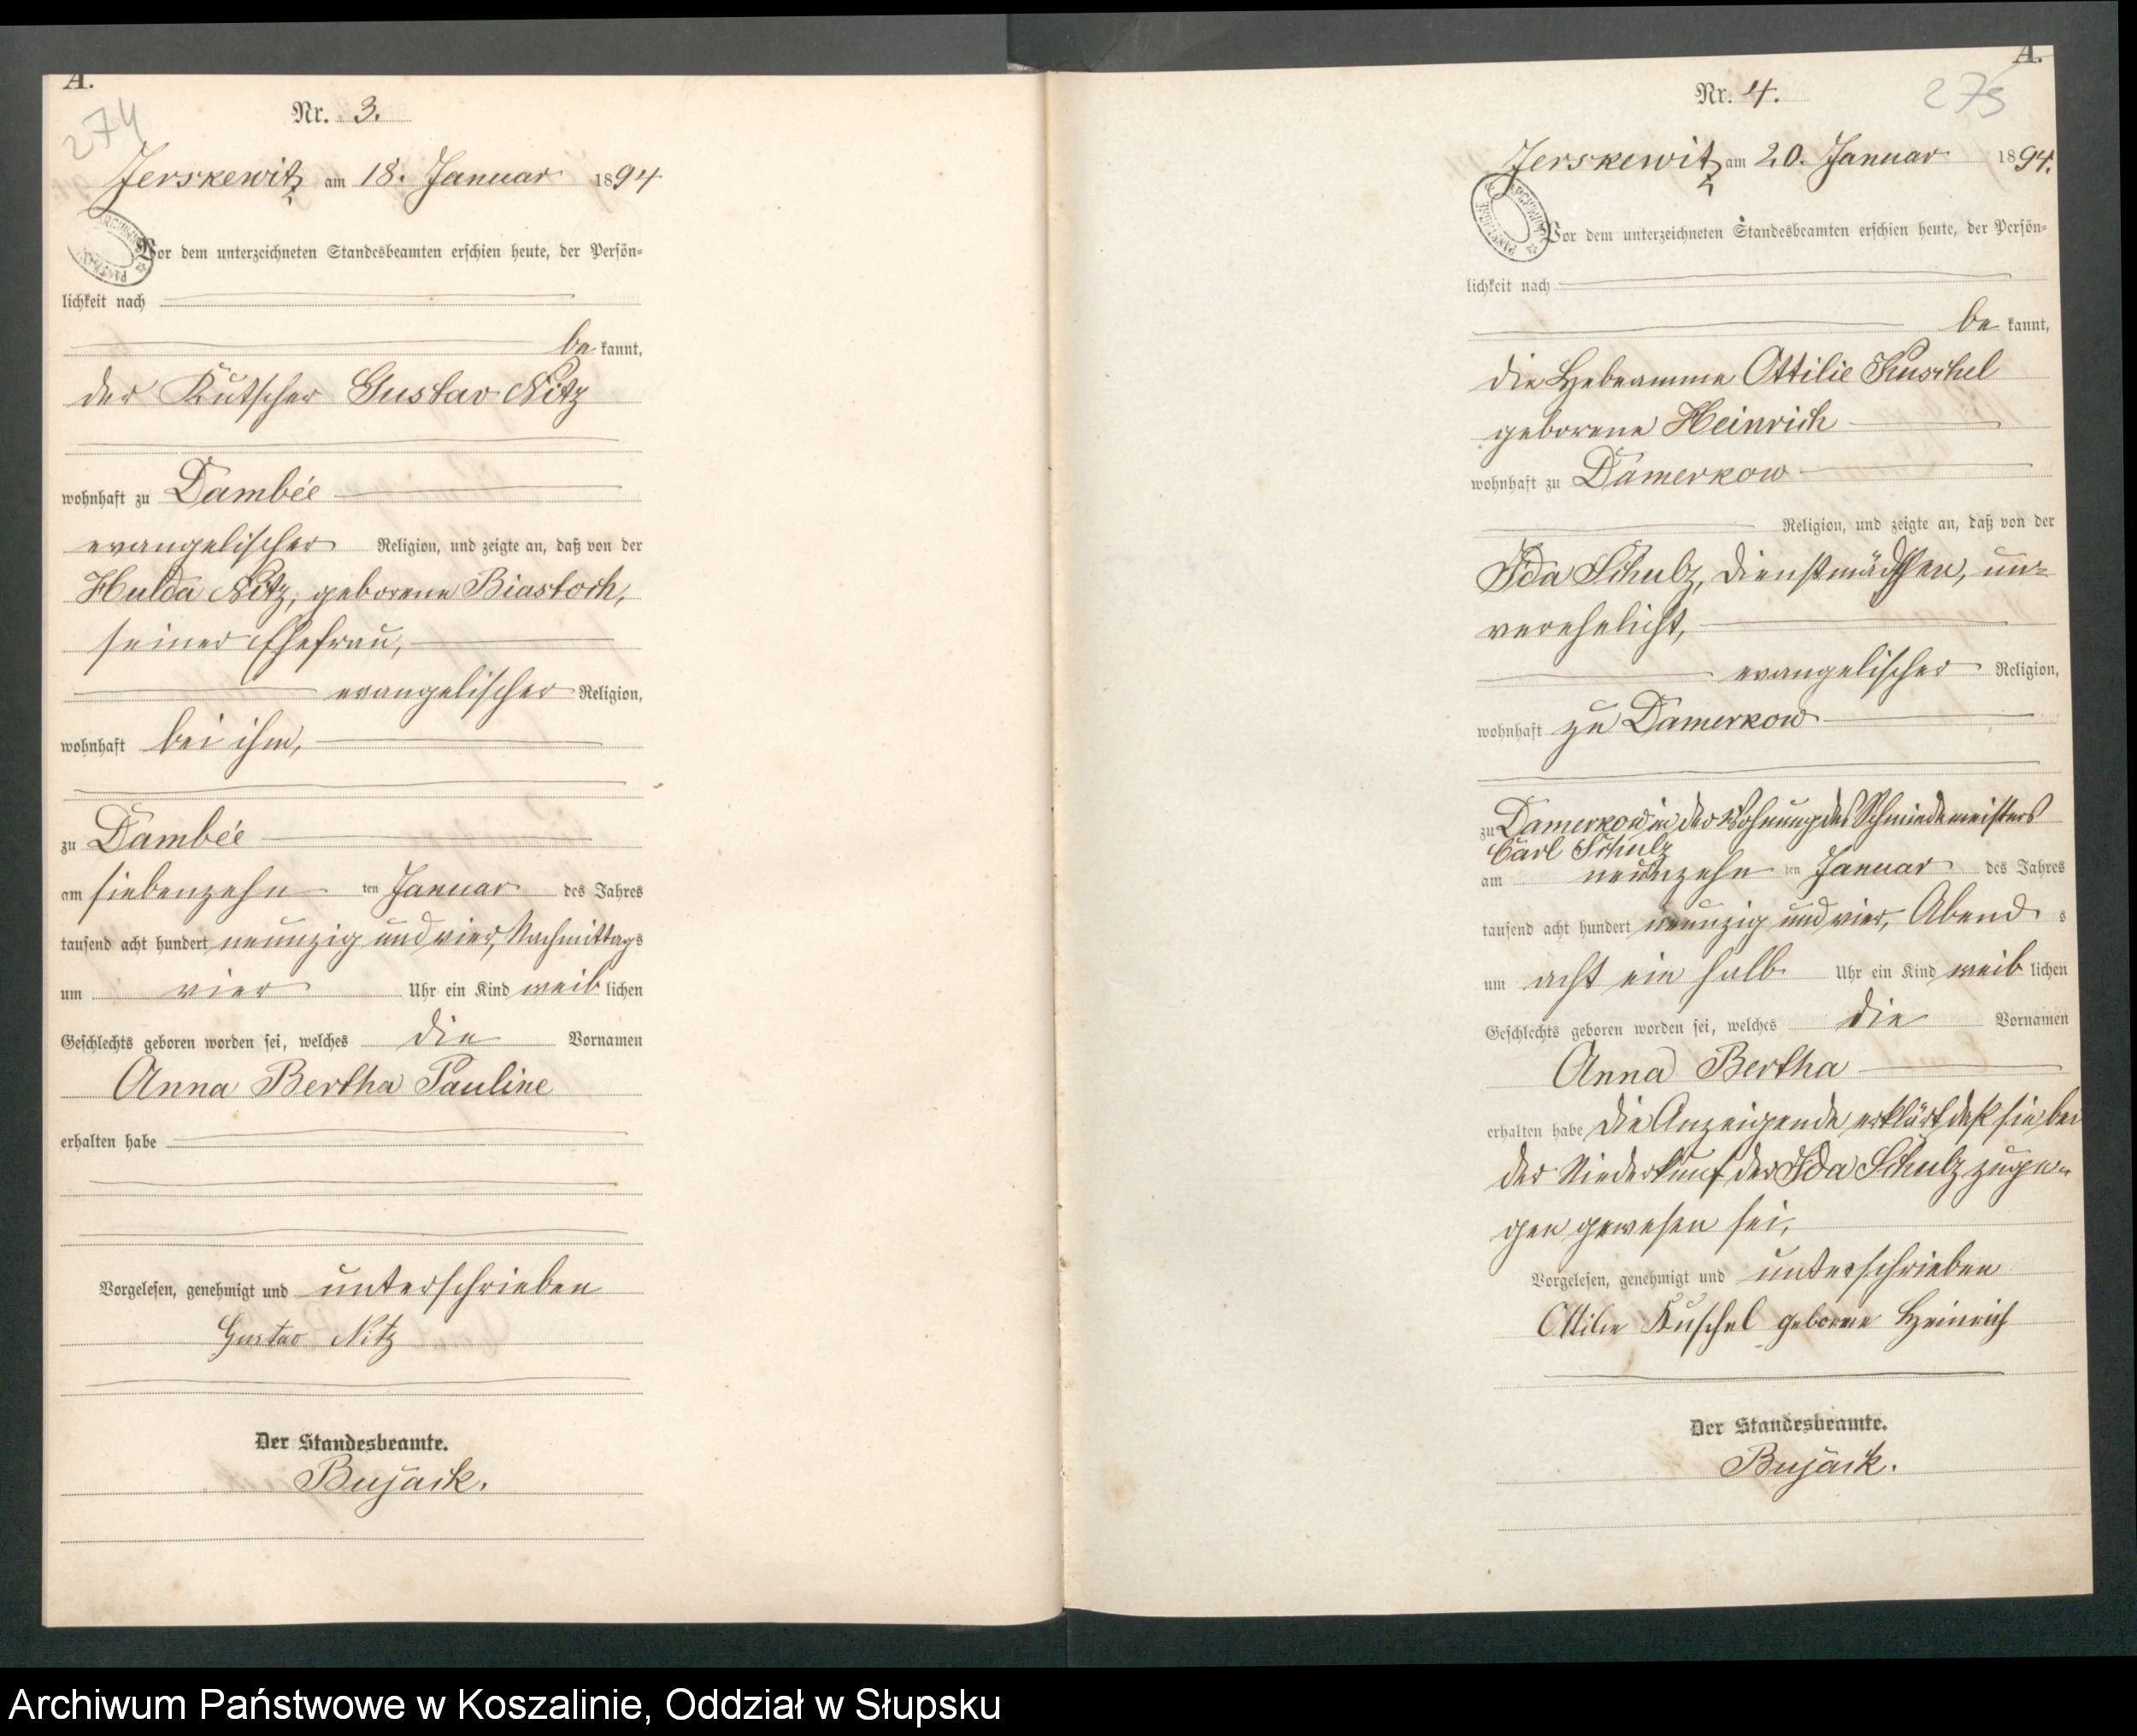 A.
274
Nr. 3.
Jerskewitz am 18. Januar 1894
Vor dem unterzeichneten Standesbeamten erschien heute, der Persön-
lichkeit nach
be kannt,
der Kutscher Gustav Nitz
wohnhaft zu Dambée
evangelischer Religion, und zeigte an, daß von der
Hulda Nitz, geborene Biastoch,
seiner Ehefrau,
evangelischer Religion,
wohnhaft bei ihm,
zu Dambée
am siebenzehn ten Januar des Jahres
tausend acht hundert neunzig und vier, Nachmittags
um vier Uhr ein Kind weib lichen
Geschlechts geboren worden sei, welches die Vornamen
Anna Bertha Pauline
erhalten habe
Vorgelesen, genehmigt und unterschrieben
Gustav Nitz
Der Standesbeamte.
Bujack.
A.
275
Nr. 4.
Jerskewitz am 20. Januar 1894.
Vor dem unterzeichneten Standesbeamten erschien heute, der Persön-
lichkeit nach
be kannt,
die Hebeamme Ottilie Kuschel
geborene Heinrich
wohnhaft zu Damerkow
Religion, und zeigte an, daß von der
Ida Schulz, Dienstmädchen, un-
verehelicht,
evangelischer Religion,
wohnhaft zu Damerkow
zu Damerkow in der Wohnung des Schmiedemeisters
Carl Schulz
am neunzehn ten Januar des Jahres
tausend acht hundert neunzig und vier, Abend s
um acht ein halb Uhr ein Kind weib lichen
Geschlechts geboren worden sei, welches die Vornamen
Anna Bertha
erhalten habe die Anzeigende erklärt, daß sie bei
der Niederkunf der Ida Schulz zuge-
gen gewesen sei,
Vorgelesen, genehmigt und unterschrieben
Ottilie Kuschel geborne Heinrich
Der Standesbeamte.
Bujack.
Archiwum Państwowe w Koszalinie, Oddział w Słupsku